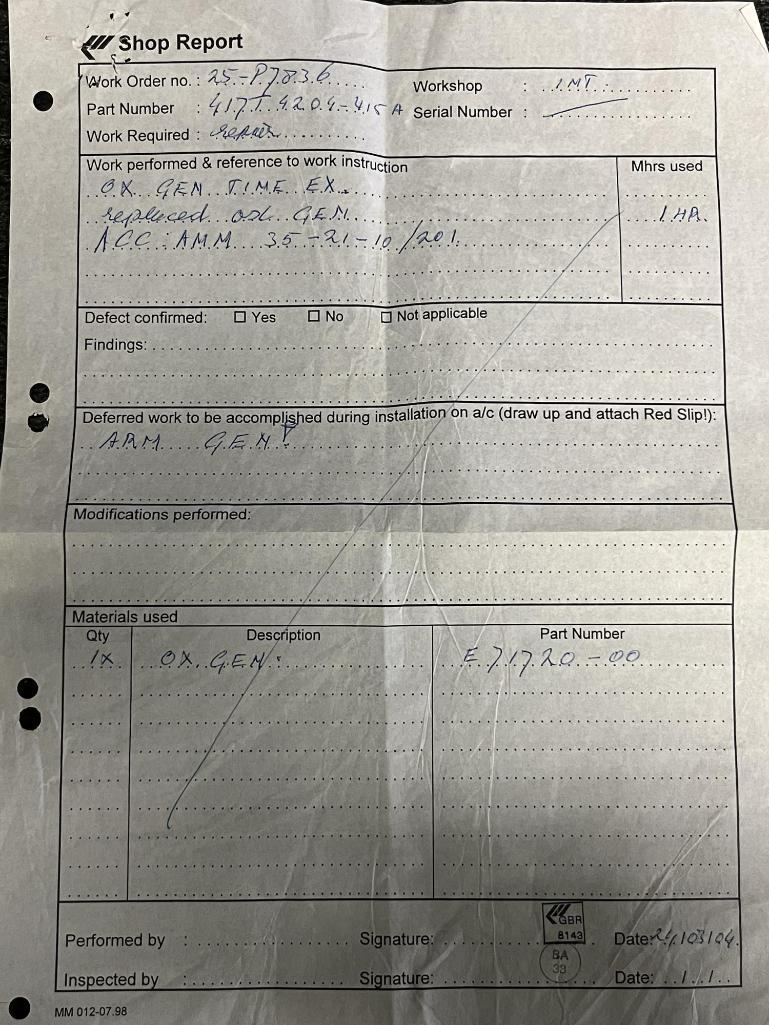 Shop Report
Work Order no. : 25-P7836
Workshop : IMT.
Part Number : 417T4204-415A
Serial Number :
Work Required : repair
Work performed & reference to work instruction
Mhrs used
OX GEN TIME EX.
replaced GEN. 1 HR.
ACC: AMM 35-21-10/201.
Defect confirmed: □ Yes □ No □ Not applicable
Findings:
Deferred work to be accomplished during installation on a/c (draw up and attach Red Slip!):
ARM GEN!
Modifications performed:
Materials used
Qty Description Part Number
1X OX GEN: E71720-00
GBR
8143
Performed by : Signature: Date:
BA
33
Inspected by : Signature: Date: / /
MM 012-07.98